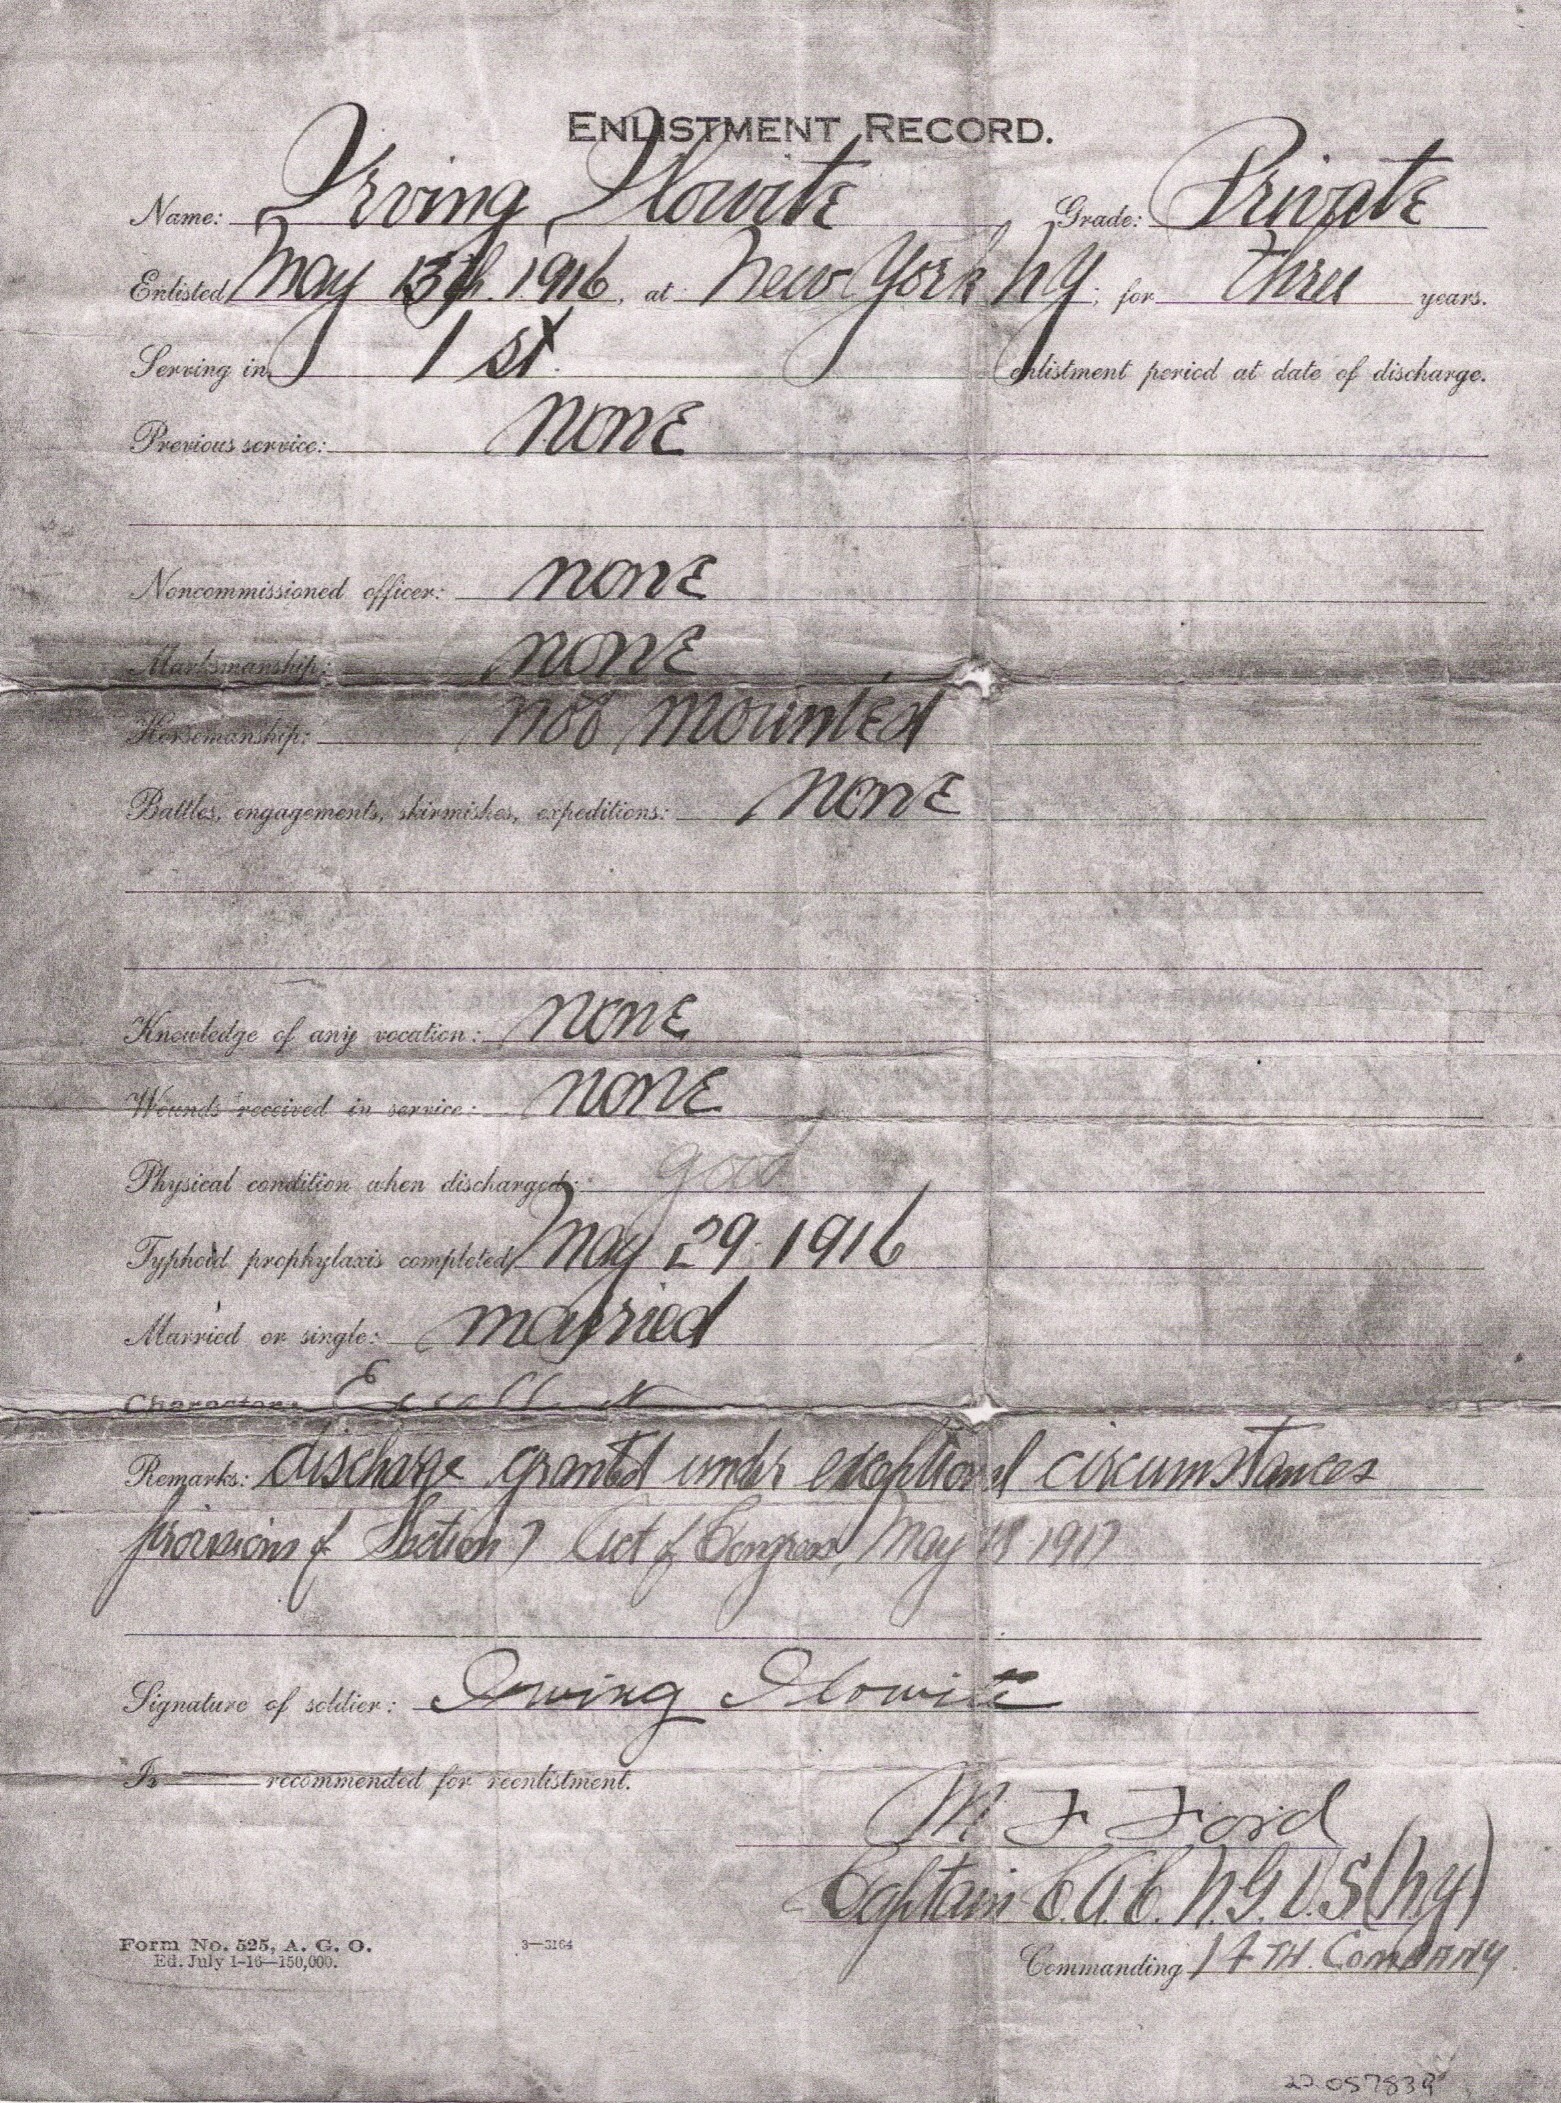 ENLISTMENT RECORD.
Name: Irving Ilowite Grade: Private
Enlisted May 13th. 1916, at New York NY; for three years.
Serving in 1 st. enlistment period at date of discharge.
Previous service: none
Noncommissioned officer: none
Marksmanship: none
Horsemanship: not mounted
Battles, engagements, skirmishes, expeditions: none
Knowledge of any vocation: none
Wounds received in service: none
Physical condition when discharged: good
Typhoid prophylaxis completed May 29. 1916
Married or single: married
Character: Excellent
Remarks: discharge granted under exceptional circumstances
provisions of Section 7 Act of Congress, May 18 1917
Signature of soldier: Irving Ilowite
Is recommended for reenlistment.
M F Ford
Captain C.A.C. N.G.U.S (N.Y)
Form No. 525, A. G. O. 3—3164
Ed. July 1-16—150,000.
Commanding 14TH. COMPANY.
22 057839